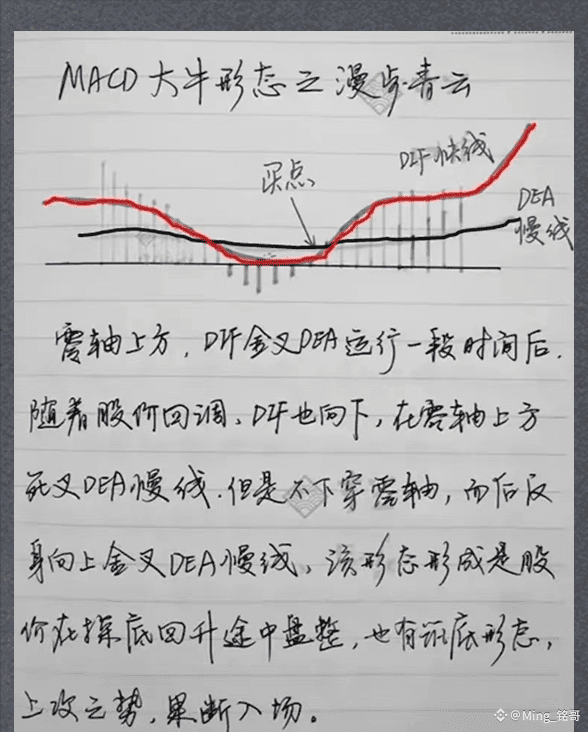 MACD大牛形态之漫步青云
买点
DIF快线
DEA
慢线
零轴上方，DIF金叉DEA运行一段时间后，
随着股价回调，DIF也向下，在零轴上方
死叉DEA慢线．但是不下穿零轴，而后反
身向上金叉DEA慢线，该形态形成是股
价在探底回升途中盘整，也有筑底形态，
上攻之势，果断入场。
@Ming_铭哥